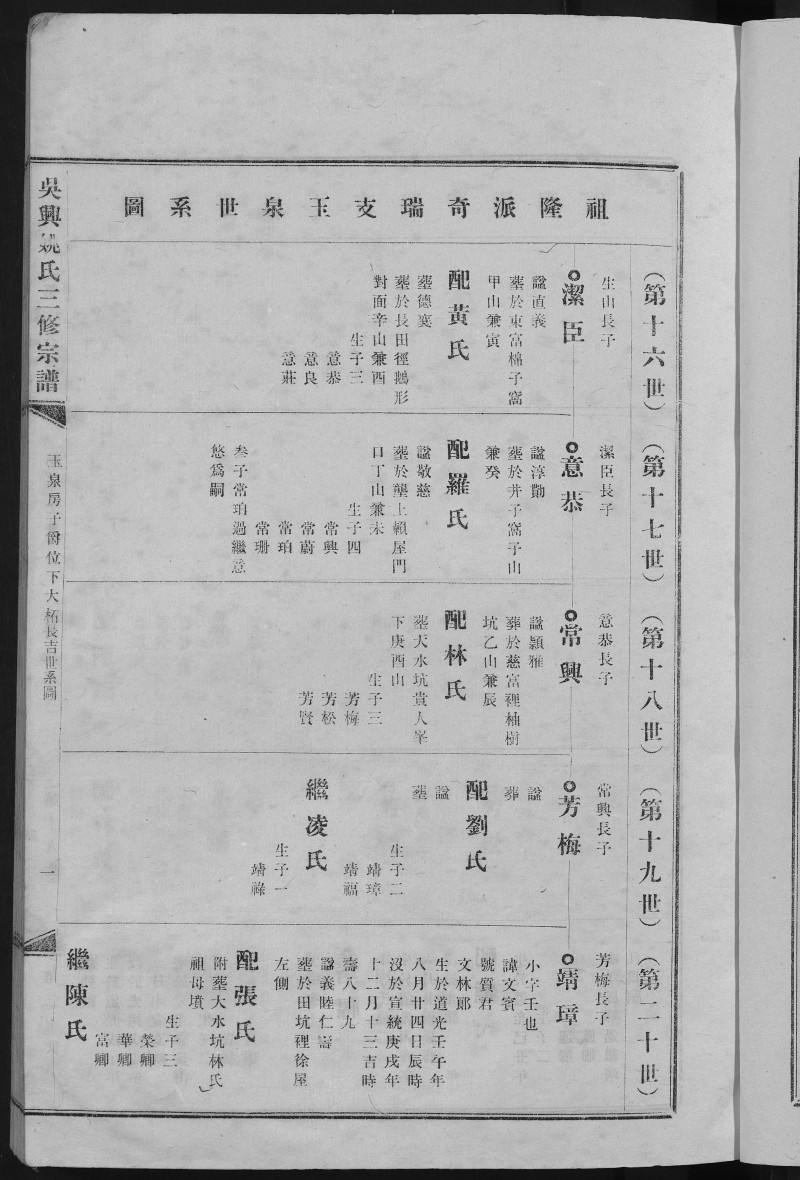 吳興姚氏三修宗譜
玉泉房子爵位下大柘長吉世系圖
一
祖隆派奇瑞支玉泉世系圖
（第十六世）
生山長子
潔臣
諡直義
葬於東富棉子窩
甲山兼寅
配黃氏
諡德襄
葬於長田徑鵝形
對面辛山兼酉
生子三
意恭
意良
意莊
（第十七世）
潔臣長子
意恭
諡淳勤
葬於井子窩子山
兼癸
配羅氏
諡敬慈
葬於壟上賴屋門
口丁山兼未
生子四
常興
常蔚
常珀
常珊
叁子常珀過繼意
悠爲嗣
（第十八世）
意恭長子
常興
諡穎雅
葬於慈富裡柚樹
坑乙山兼辰
配林氏
葬大水坑貴人峯
下庚酉山
生子三
芳梅
芳松
芳賢
（第十九世）
常興長子
芳梅
諡
葬
配劉氏
諡
葬
生子二
靖璋
靖福
繼凌氏
生子一
靖祿
（第二十世）
芳梅長子
靖璋
小字壬也
諱文賓
號質君
文林郎
生於道光壬午年
八月廿四日辰時
沒於宣統庚戌年
十二月十三吉時
壽八十九
諡義睦仁壽
葬於田坑裡徐屋
左側
配張氏
附葬大水坑林氏
祖母墳
生子三
榮卿
華卿
富卿
繼陳氏